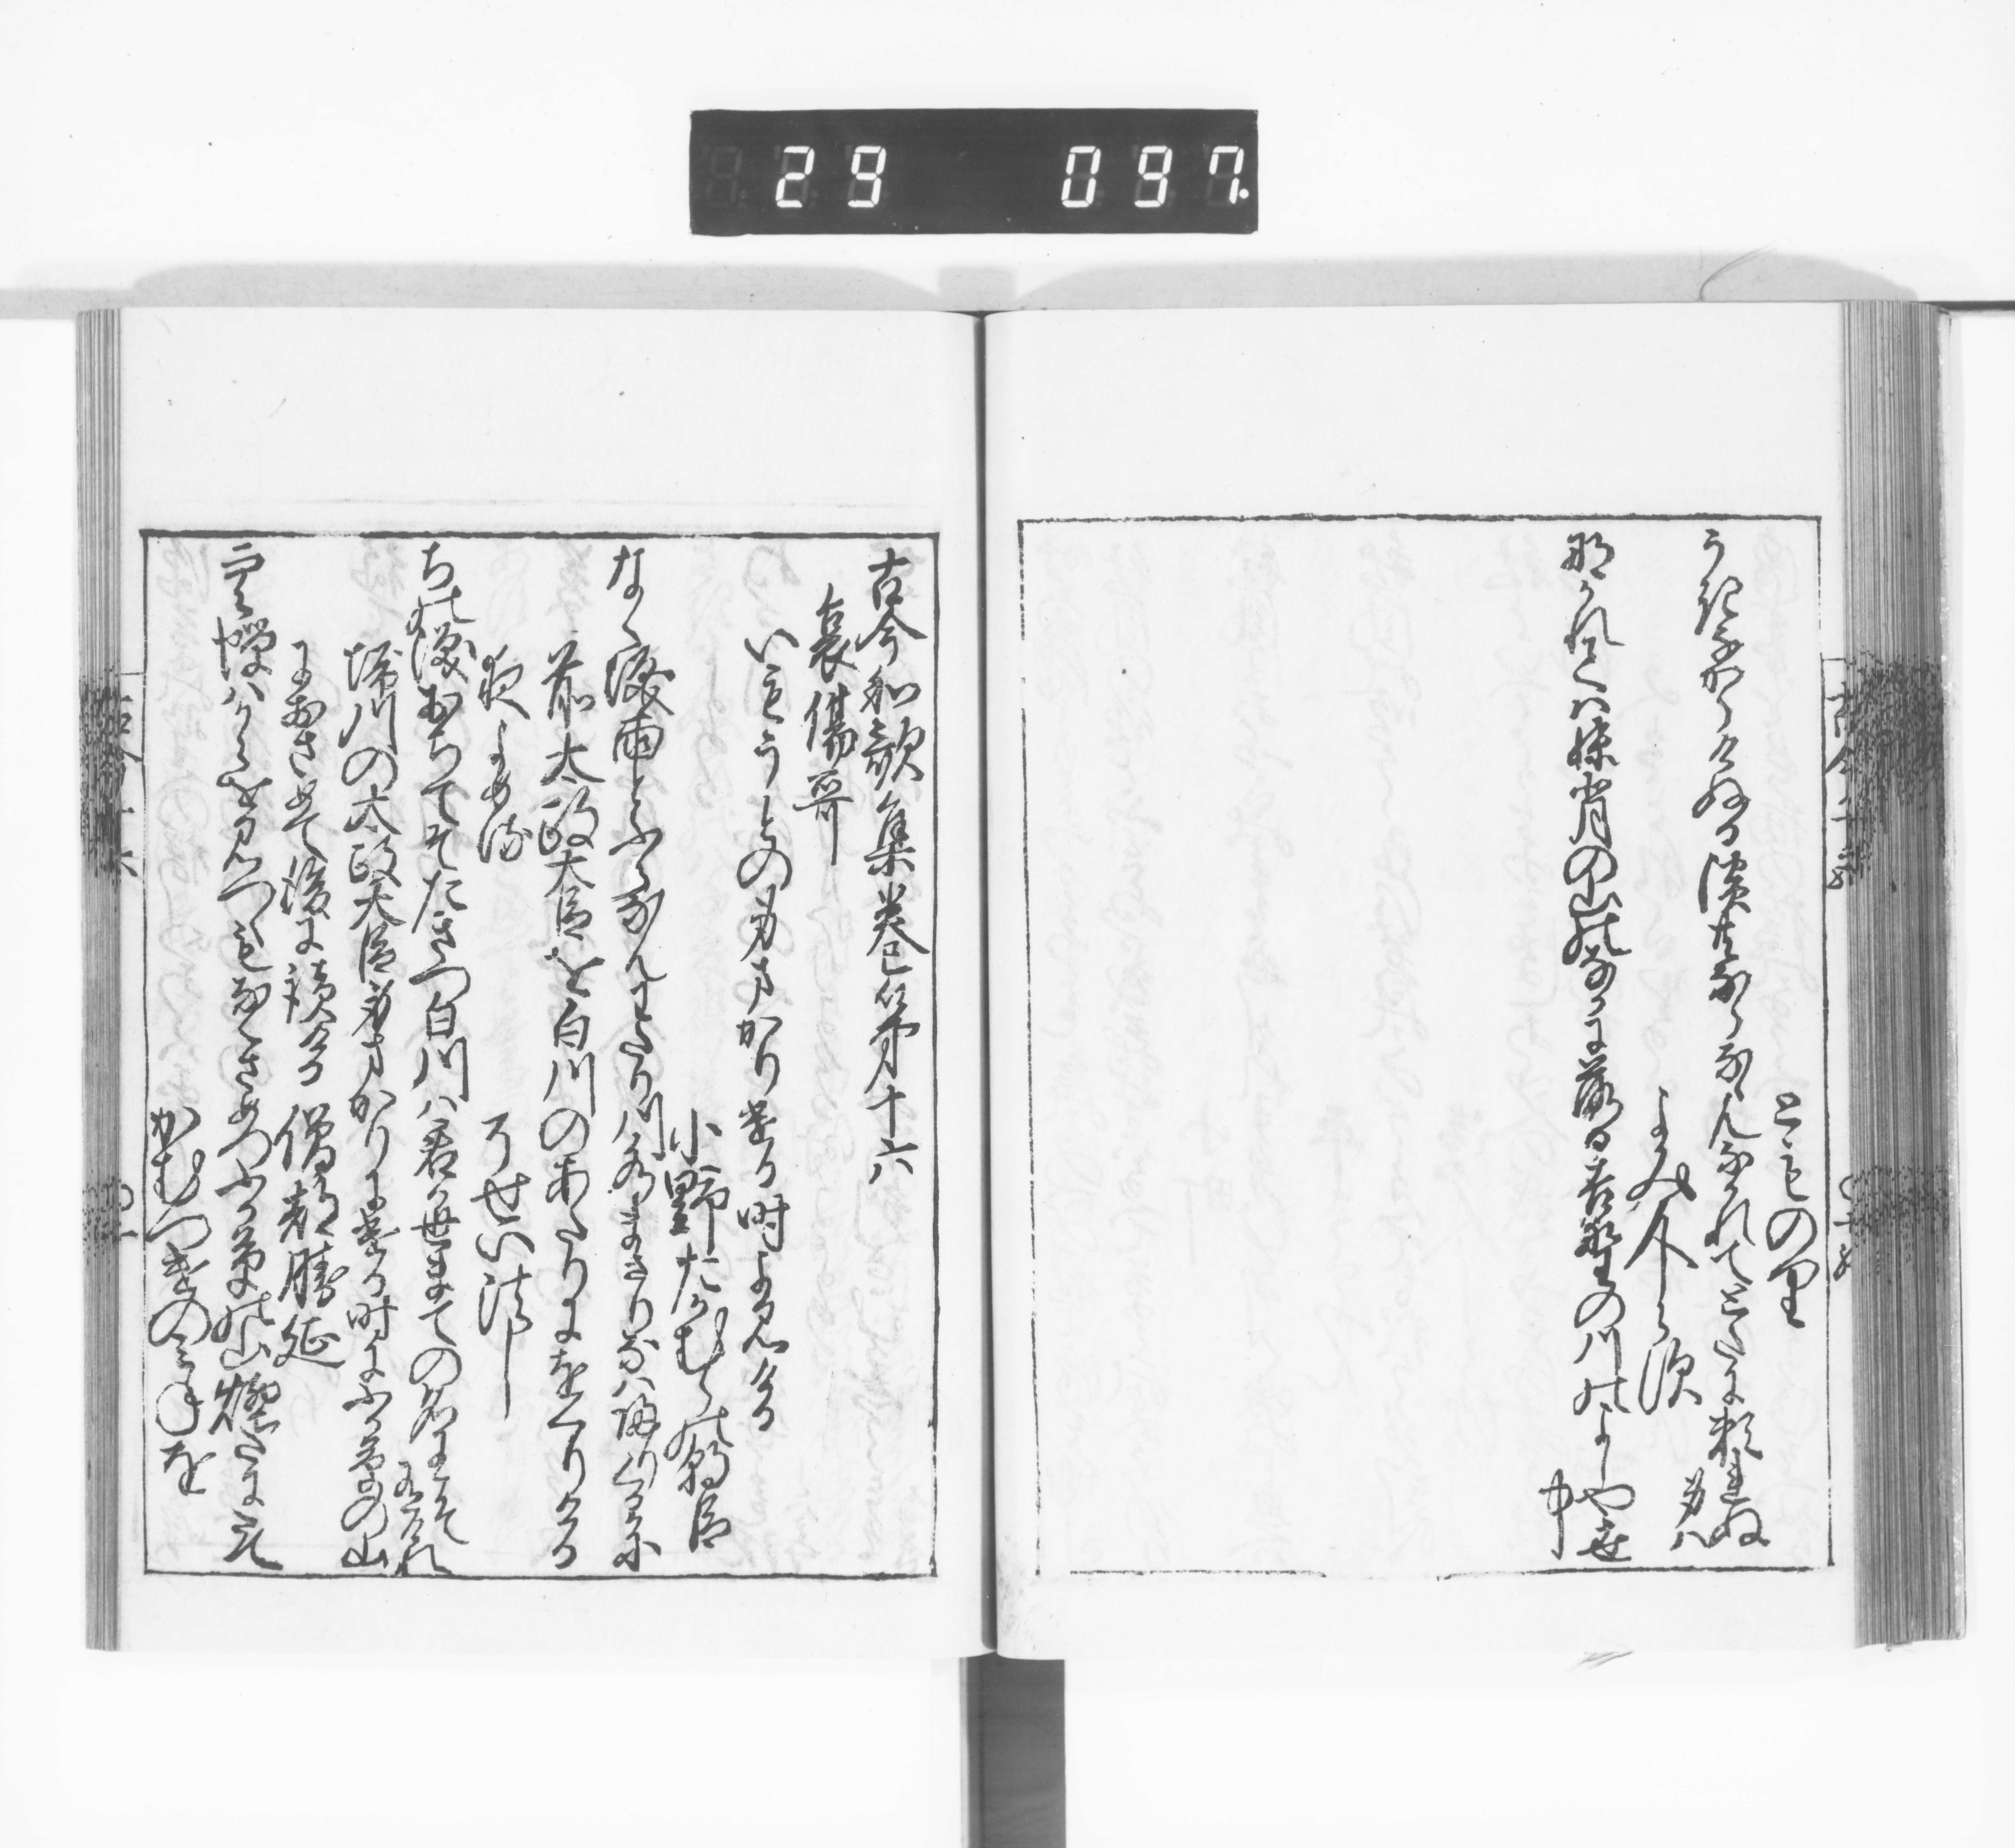 29 097
とものり
うきなからけぬる淡ともなりなゝんなかれてとたに頼まれぬ
身ハ
よみ人しらす
那かれてハ妹背の山のなかに落る吉野の川のよしや世
中
古今和歌集巻第十六
哀傷哥
いもうとの身まかりける時よみける
小野たかむらの朝臣
なく涙雨とふらなんわたり川水まさりなは帰りくるかに
前太政大臣を白川のあたりにをくりける
夜よめる
そせい法し
ちの涙おちてそたきつ白川ハ君か世まての名にこそ
有けれ
堀川の太政大臣身まかりにける時にふか草の山
におさめて後に読ける 僧都勝延
うつ蝉ハからを見つゝもなくさめつふか草の山煙たにたて
かむつけのみねを